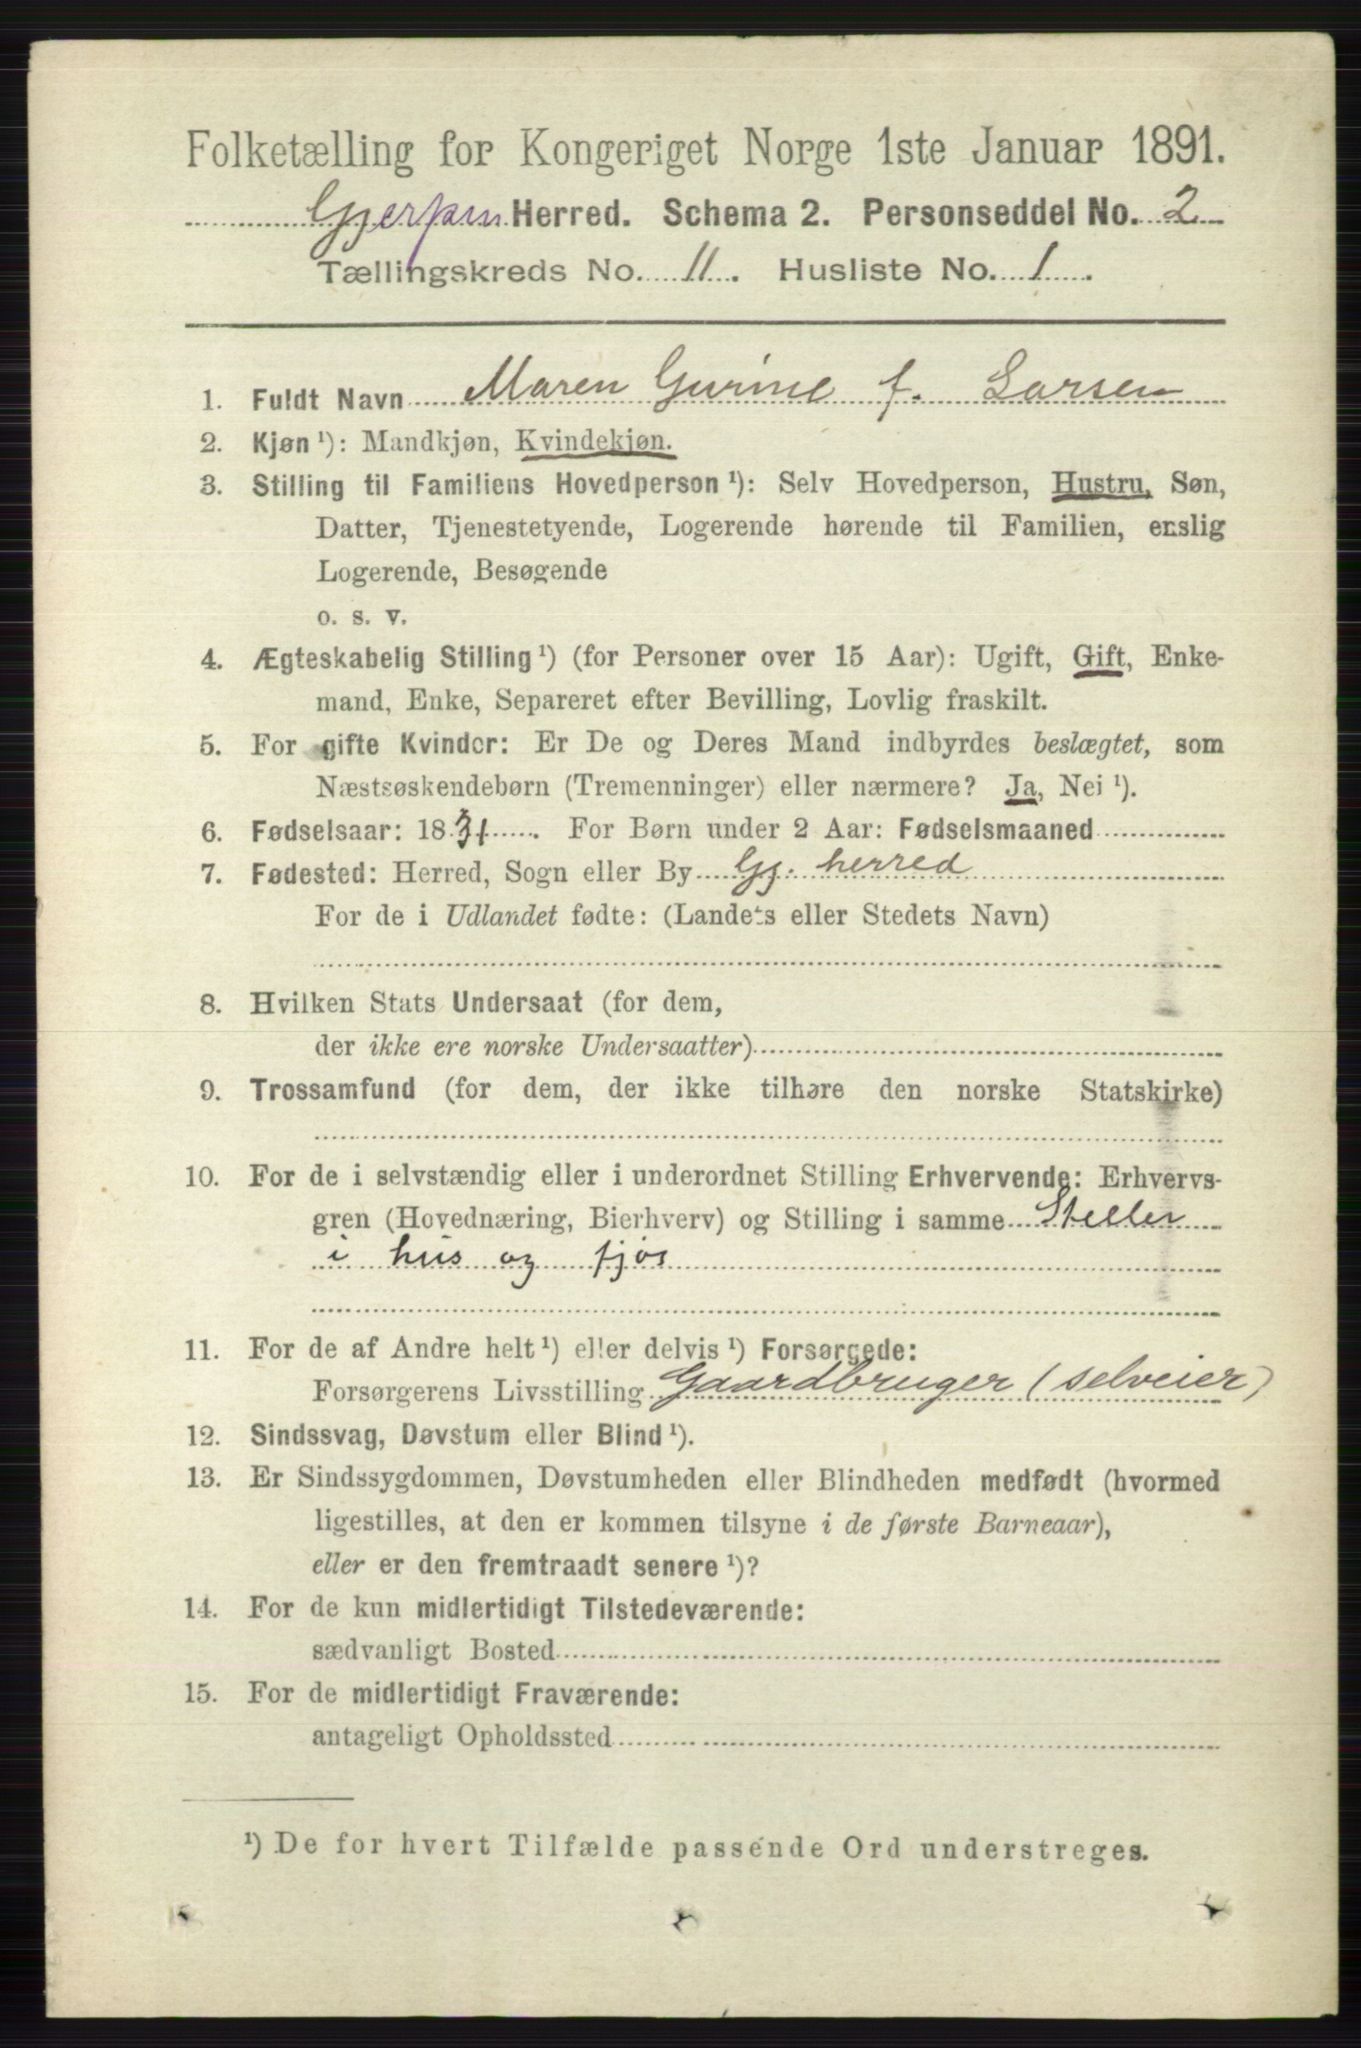 Folketælling for Kongeriget Norge 1ste Januar 1891.
Gjerpen Herred. Schema 2. Personseddel No. 2
Tællingskreds No. 11. Husliste No. 1.
1. Fuldt Navn Maren Gurine f. Larsen
2. Kjøn ¹): Mandkjøn, Kvindekjøn.
3. Stilling til Familiens Hovedperson ¹): Selv Hovedperson, Hustru, Søn,
Datter, Tjenestetyende, Logerende hørende til Familien, enslig
Logerende, Besøgende
o. s. v.
4. Ægteskabelig Stilling ¹) (for Personer over 15 Aar): Ugift, Gift, Enke-
mand, Enke, Separeret efter Bevilling, Lovlig fraskilt.
5. For gifte Kvinder: Er De og Deres Mand indbyrdes beslægtet, som
Næstsøskendebørn (Tremenninger) eller nærmere? Ja, Nei ¹).
6. Fødselsaar: 1831. For Børn under 2 Aar: Fødselsmaaned
7. Fødested: Herred, Sogn eller By Gj. herred
For de i Udlandet fødte: (Landets eller Stedets Navn)
8. Hvilken Stats Undersaat (for dem,
der ikke ere norske Undersaatter)
9. Trossamfund (for dem, der ikke tilhøre den norske Statskirke)
10. For de i selvstændig eller i underordnet Stilling Erhvervende: Erhvervs-
gren (Hovednæring, Bierhverv) og Stilling i samme Steller
i hus og fjøs
11. For de af Andre helt ¹) eller delvis ¹) Forsørgede:
Forsørgerens Livsstilling Gaardbruger (selveier)
12. Sindssvag, Døvstum eller Blind ¹).
13. Er Sindssygdommen, Døvstumheden eller Blindheden medfødt (hvormed
ligestilles, at den er kommen tilsyne i de første Barneaar),
eller er den fremtraadt senere ¹)?
14. For de kun midlertidigt Tilstedeværende:
sædvanligt Bosted
15. For de midlertidigt Fraværende:
antageligt Opholdssted
¹) De for hvert Tilfælde passende Ord understreges.